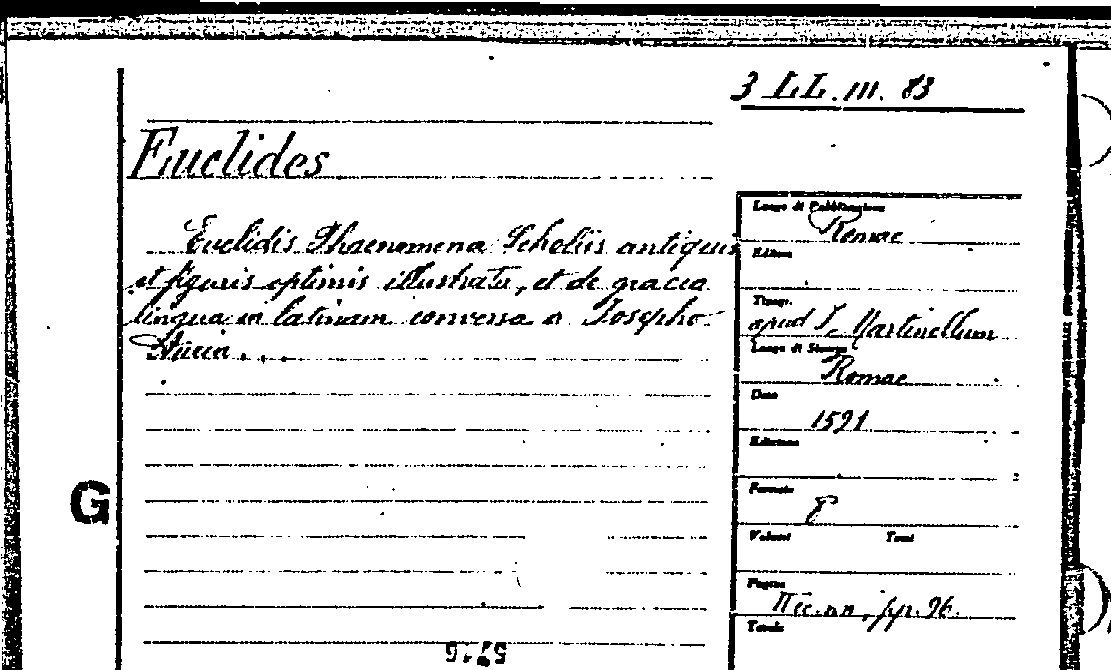 3 LL. m. 83
Euclides
Euclidis Phaenomena Scholiis antiquis
et figuris optimis illustrata, et de graeca
lingua in latinam conversa a Josepho
Auria...
G
Luogo di Pubblicazione
Romae
Editore
Tipogr.
apud J. Martinellum
Luogo di Stampa
Romae
Data
1591
Edizione
Formato
8
Volumi Tomi
Pagine
pp. 96.
Tavole